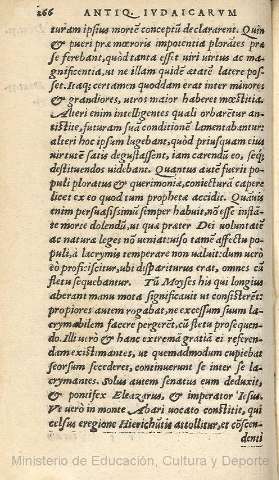 266 ANTIQ. IVDAICARVM
turam ipsius mortẽ conceptũ declararent. Quin
& pueri præ mœroris impotentia plorãtes præ
se ferebant, quòd tanta esset uiri uirtus ac ma-
gnificentia, ut ne illam quidẽ ætatẽ latere pos-
set. Itaq; certamen quoddam erat inter minores
& grandiores, utros maior haberet mœstitia.
Alteri enim intelligentes quali orbarẽtur an-
tistite, futuram suã conditionẽ lamentabantur:
alteri hoc ipsum lugebant, quòd priusquam eius
uirtutẽ satis degustassent, iam carendũ eo, seq;
destituendos uidebant. Quantus autẽ fuerit po-
puli ploratus & querimonia, coniecturã capere
licet ex eo quod tum prophetæ accidit. Quãuis
enim persuasissimũ semper habuit, nõ esse instã-
te morte dolendũ, ut quæ præter Dei uoluntatẽ
ac naturæ leges nõ ueniat: uiso tamẽ affectu po-
puli, à lacrymis temperare non ualuit: dum uerò
eò proficiscitur, ubi dispariturus erat, omnes cũ
fletu sequebantur. Tũ Moyses his qui longius
aberant manu mota significauit ut consisterẽt:
propiores autem rogabat, ne excessum suum la-
crymabilem facere pergerẽt, cũ fletu prosequen-
do. Illi uerò & hanc extremã gratiã ei referen-
dam existimantes, ut quemadmodum cupiebat
seorsum secederet, continuerunt se inter se la-
crymantes. solus autem senatus eum deduxit,
& pontifex Eleazarus, & imperator Iesus.
Vt uerò in monte Abari uocato constitit, qui
celsus eregione Hierichũtis attollitur, et cõscen-
denti
Ministerio de Educación, Cultura y Deporte